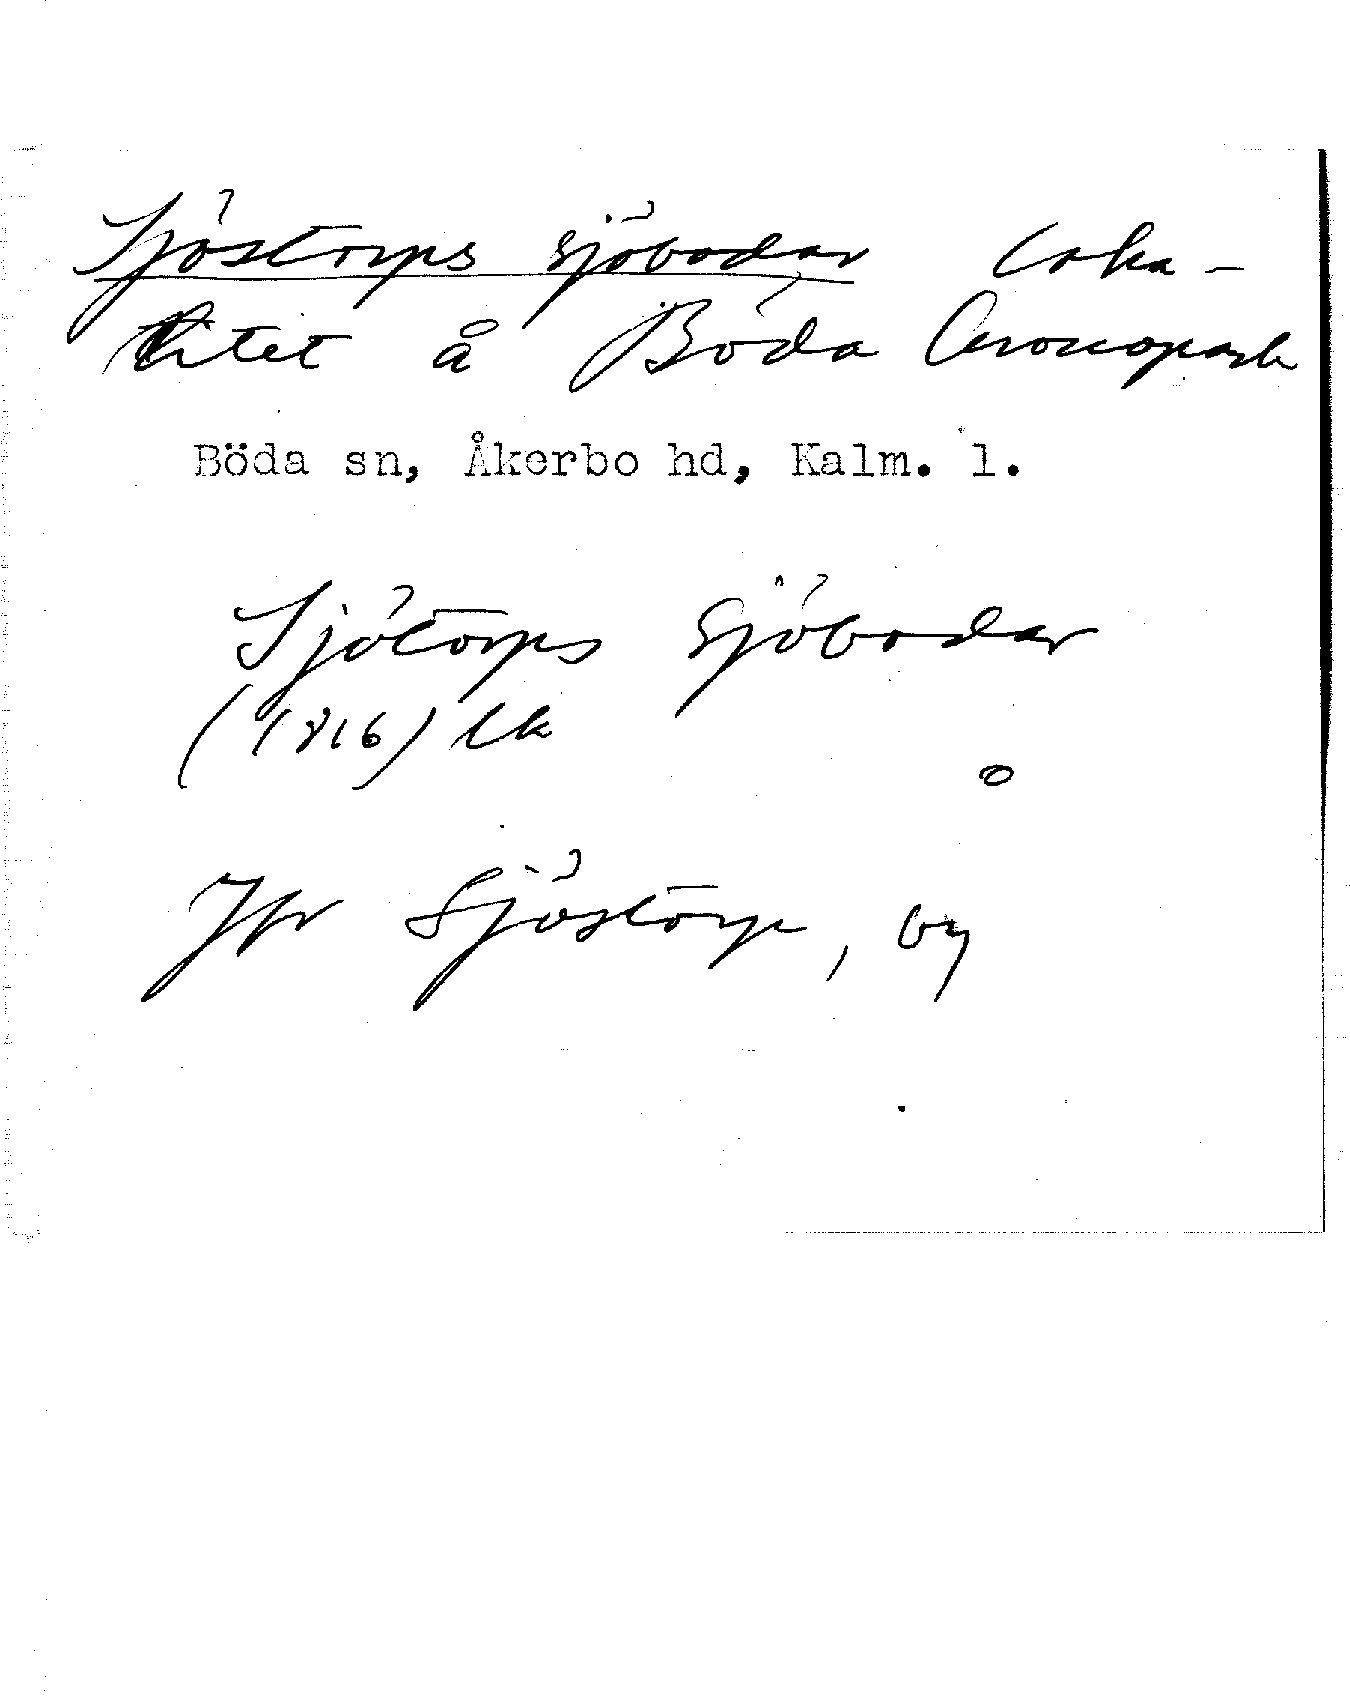 Sjöstorps sjöbodar loka-
litet å Böda kronopark
Böda sn, Åkerbo hd, Kalm. l.
Sjötorps sjöbodar
(1816) lk
Jfr Sjöstorp, by